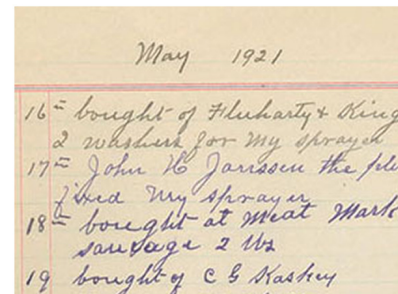 May 1921
16" bought of Fluharty & King
2 washers for my sprayer
17" John H Janssen the
fixed my sprayer
18" bought at Meat Mark
sausage 2 lbs
19 bought of C G Kaskey